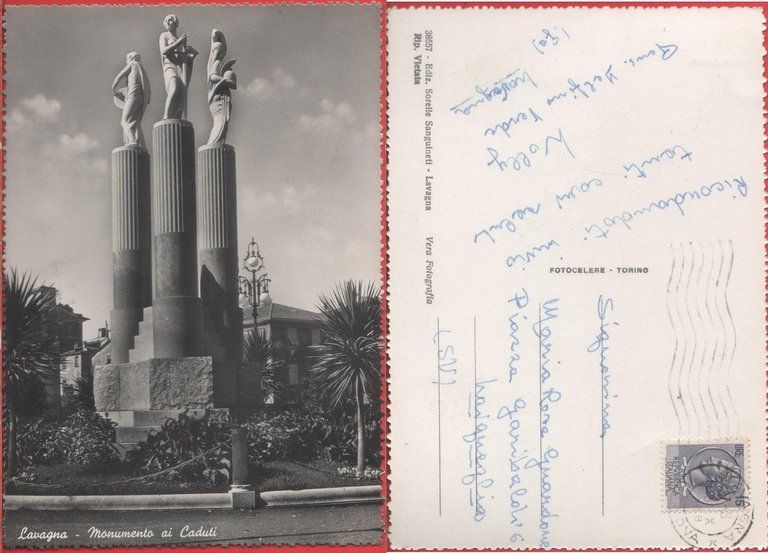 Lavagna - Monumento ai Caduti
38657 - Ediz. Sorelle Sanguineti - Lavagna
Rip. Vietata
Vera Fotografia
FOTOCELERE - TORINO
Ricordandoti invio
tanti cari saluti
Nelly
Lavagna
(Ge)
Signorina
Maria Rosa
Piazza Garibaldi 6
Laigueglia
(SV)